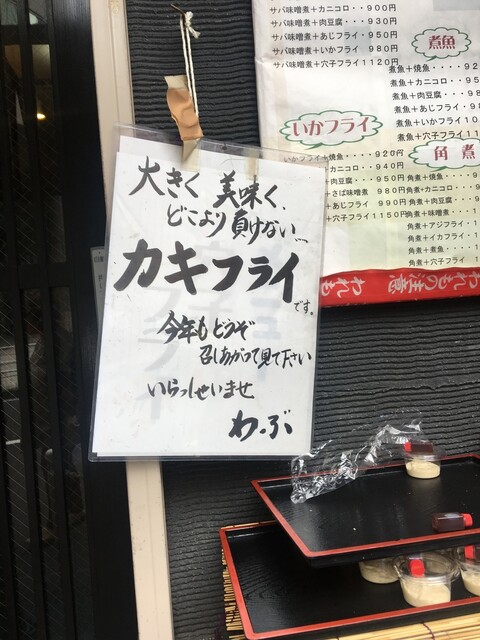 大きく 美味く、
どこより負けない…
カキフライ
です。
今年もどうぞ
召しあがって見て下さい
いらっしゃいませ
わ.ぶ
サバ味噌煮+カニコロ・・900円
サバ味噌煮+肉豆腐・・・930円
サバ味噌煮+あじフライ・950円
サバ味噌煮+いかフライ・980円
サバ味噌煮+穴子フライ1120円
いかフライ
いかフライ+焼魚・・・920円
カニコロ・・940円
+肉豆腐・・・950円
+さば味噌煮 980円
+あじフライ 990円
+穴子フライ1150円
煮魚
煮魚+焼魚・・・・92
煮魚+カニコロ・・95
煮魚+肉豆腐・・・98
煮魚+あじフライ・98
煮魚+いかフライ10
煮魚+穴子フライ11
角煮
角煮+焼魚・・・
角煮+カニコロ・
角煮+肉豆腐・・
角煮+味噌煮・・
角煮+アジフライ
角煮+イカフライ
角煮+煮魚・・・
角煮+穴子フライ
われもの注意
われも